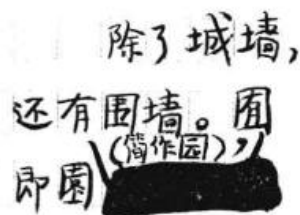 除了城墙，
还有围墙。囿
(简作园)，
即園